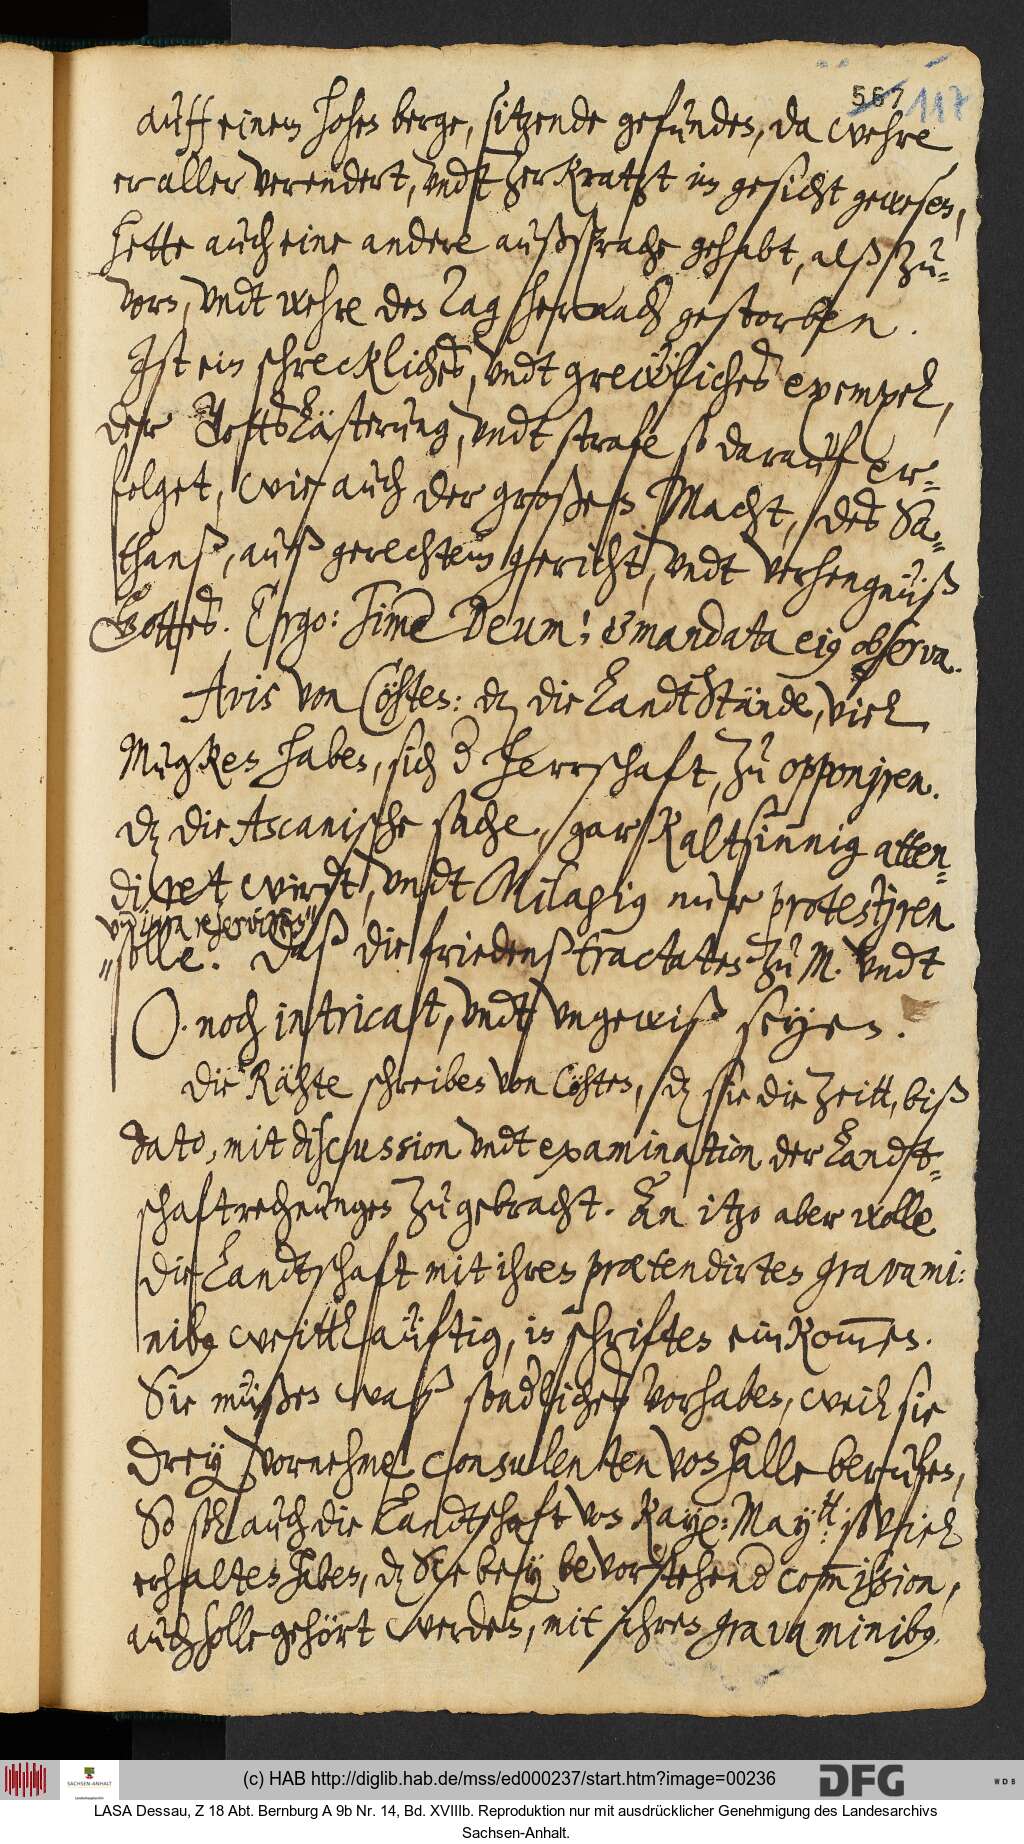 567 117
auff einem hohen berge, sitzende gefunden, da wehre
er aller verendert, undt zerkratzt im gesicht gewesen,
hette auch eine andere außsprache gehabt, alß zu=
vorn, undt wehre den Tag hernach gestorben.
Ist ein schreckliches, undt grewliches exempel,
der GottsläSterung, undt strafe so darauf er=
folget, wie auch der großen Macht, des Sa=
thanß, auß gerechtem gericht, undt verhengnüß
Gottes. Ergo: Time Deum! & mandata ejus observa.
Avis von Cöhten: dz die LandtStände, viel
Mugken haben, sich d herrschaft, zu opponjren.
dz die Ascanische sache, gar kaltsinnig atten=
diret wirdt, undt Milagius nur protestjren
und jura reserviren
solle. Daß die friedenßtractaten zu M. undt
O. noch intricat, undt ungewiß seyen.
Die Rähte schreiben von Cöhten, dz sie die zeitt, biß
dato, mit discussion undt examination der Landt=
schaftrechnungen zugebracht. An itzo aber wolle
die Landtschaft mit ihren prætendirten gravami:
nibus weittläuftig, in schriften einkommen.
Sie müßen waß sonderliches vorhaben, weil sie
drey vornehme Consulenten von Halle berufen,
So sol auch die Landtschaft von Kayser: Maytt: so viel
erhalten haben, dz Sie bey bevorstehender commission,
auch solle gehört werden, mit ihren gravaminibus.
(c) HAB http://diglib.hab.de/mss/ed000237/start.htm?image=00236
SACHSEN-ANHALT
DFG
WDB
LASA Dessau, Z 18 Abt. Bernburg A 9b Nr. 14, Bd. XVIIIb. Reproduktion nur mit ausdrücklicher Genehmigung des Landesarchivs
Sachsen-Anhalt.